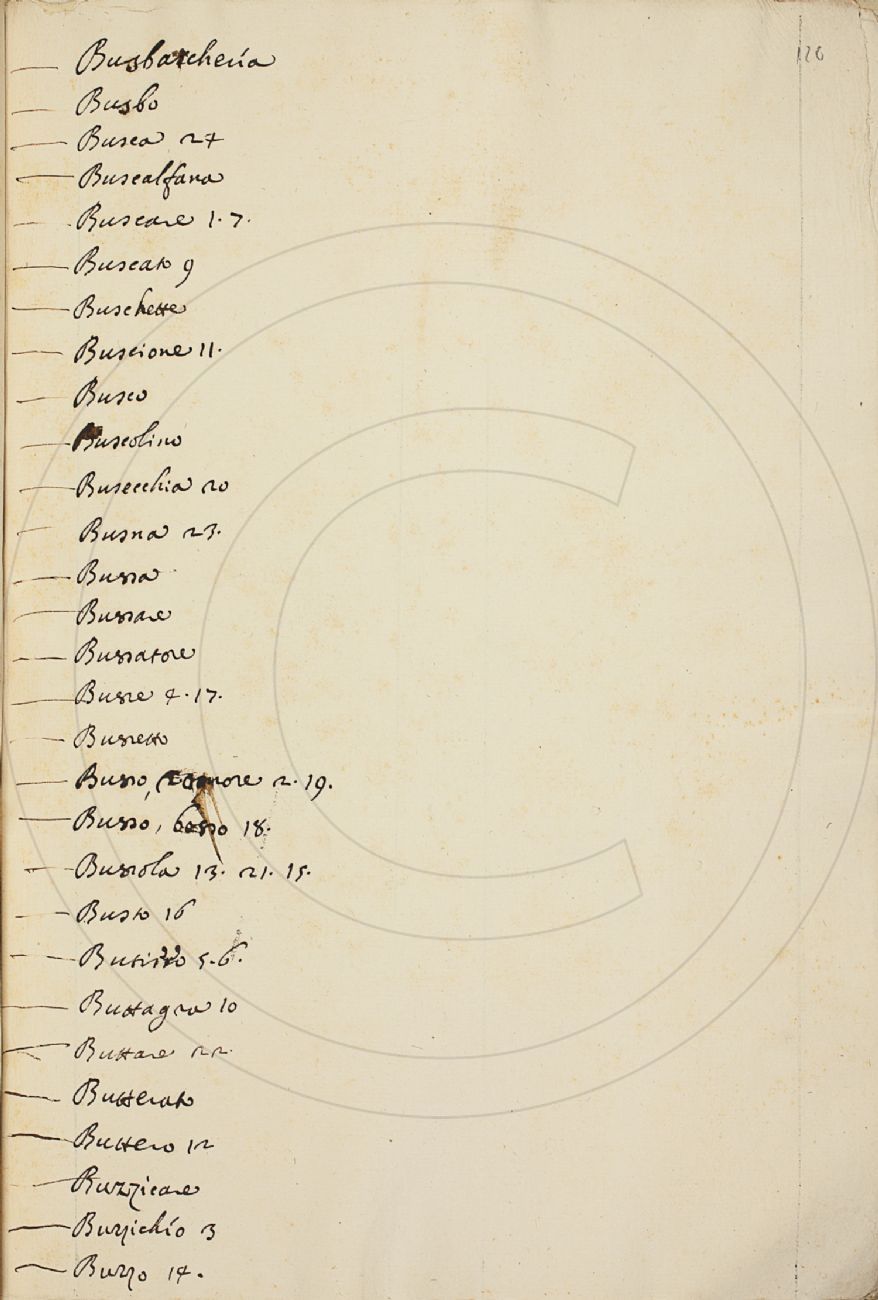 120
Busbaccheria
Busbo
Busca 24
Buscalfana
Buscare 1. 7.
Buscato 9
Buschette
Buscione 11.
Busco
Buscolino
Busecchia 20
Busna 23.
Bussa
Bussare
Bussatore
Busse 4. 17.
Bussetto
Busso, romore 2. 19.
Busso, bosso 18.
Bussola 13. 21. 15.
Busto 16
Butirro 5. 6.
Buttagra 10
Buttare 22
Butterato
Buttero 12
Buzzicare
Buzzichío 3
Buzzo 14.